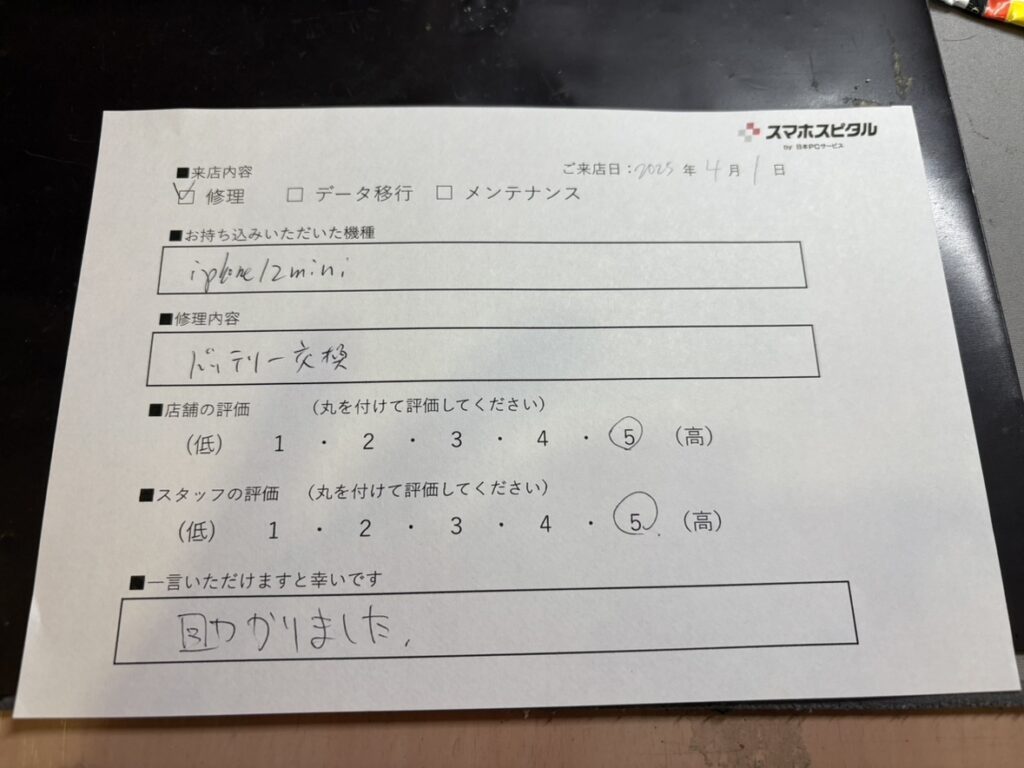 スマホスピタル
by 日本PCサービス
■来店内容
ご来店日：2025年4月1日
☑ 修理 □ データ移行 □ メンテナンス
■お持ち込みいただいた機種
iphone12mini
■修理内容
バッテリー交換
■店舗の評価 （丸を付けて評価してください）
（低） 1 ・ 2 ・ 3 ・ 4 ・ 5 （高）
■スタッフの評価 （丸を付けて評価してください）
（低） 1 ・ 2 ・ 3 ・ 4 ・ 5 （高）
■一言いただけますと幸いです
助かりました。